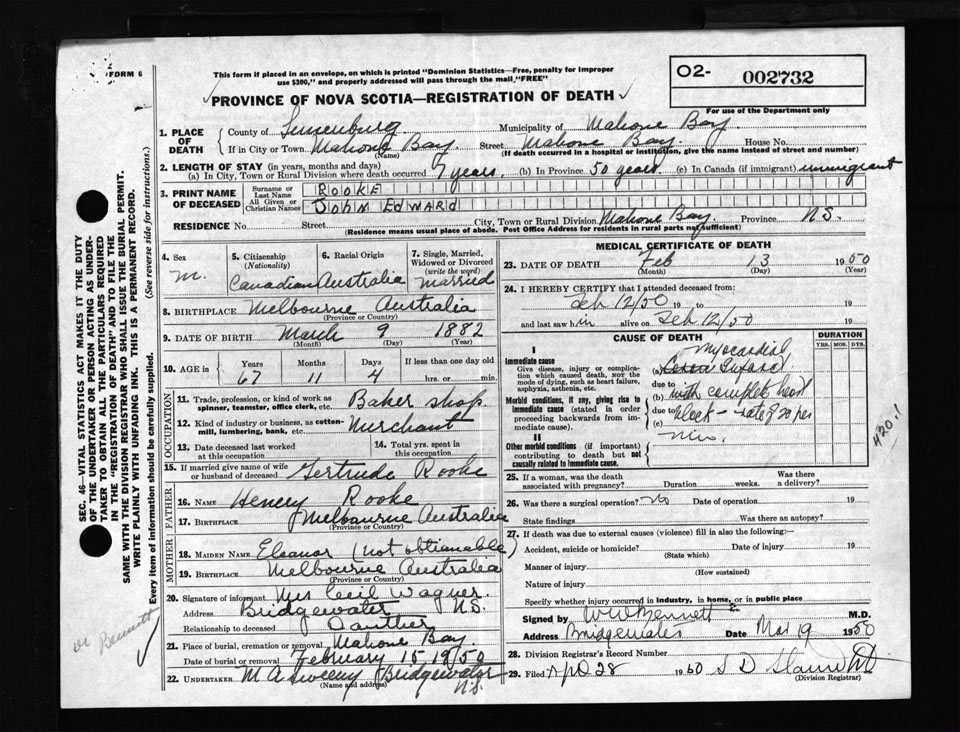 FORM 6
This form if placed in an envelope, on which is printed "Dominion Statistics—Free, penalty for improper
use $300," and properly addressed will pass through the mail "FREE"
O2- 002732
PROVINCE OF NOVA SCOTIA—REGISTRATION OF DEATH
For use of the Department only
SEC. 46—VITAL STATISTICS ACT MAKES IT THE DUTY
OF THE UNDERTAKER OR PERSON ACTING AS UNDER-
TAKER TO OBTAIN ALL THE PARTICULARS REQUIRED
IN THE "REGISTRATION OF DEATH" AND TO FILE THE
SAME WITH THE DIVISION REGISTRAR WHO SHALL ISSUE THE BURIAL PERMIT.
WRITE PLAINLY WITH UNFADING INK. THIS IS A PERMANENT RECORD.
Every item of information should be carefully supplied. (See reverse side for instructions.)
1. PLACE OF DEATH
County of Lunenburg Municipality of Mahone Bay
If in City or Town Mahone Bay Street Mahone Bay House No.
(Name) (If death occurred in a hospital or institution, give the name instead of street and number)
2. LENGTH OF STAY (in years, months and days)
(a) In City, Town or Rural Division where death occurred 7 years. (b) In Province 50 years. (c) In Canada (if immigrant) immigrant
3. PRINT NAME OF DECEASED
Surname or Last Name ROOKE
All Given or Christian Names JOHN EDWARD
RESIDENCE No. Street City, Town or Rural Division Mahone Bay Province N.S.
(Residence means usual place of abode. Post Office Address for residents in rural parts not sufficient)
4. Sex M.
5. Citizenship (Nationality) Canadian
6. Racial Origin Australia
7. Single, Married, Widowed or Divorced (write the word) Married
8. BIRTHPLACE Melbourne Australia
(Province or Country)
9. DATE OF BIRTH March 9 1882
(Month) (Day) (Year)
10. AGE in Years 67 Months 11 Days 4 If less than one day old hrs. or min.
OCCUPATION
11. Trade, profession, or kind of work as spinner, teamster, office clerk, etc. Baker shop
12. Kind of industry or business, as cotton-mill, lumbering, bank, etc. Merchant
13. Date deceased last worked at this occupation
14. Total yrs. spent in this occupation
15. If married give name of wife or husband of deceased Gertrude Rooke
FATHER
16. NAME Henery Rooke
17. BIRTHPLACE Melbourne Australia
(Province or Country)
MOTHER
18. MAIDEN NAME Eleanor (not obtianable)
19. BIRTHPLACE Melbourne Australia
(Province or Country)
20. Signature of informant Mrs Cecil Wagner
Address Bridgewater N.S.
Relationship to deceased Dauther
21. Place of burial, cremation or removal Mahone Bay
Date of burial or removal February 15 1950
22. UNDERTAKER M A Sweeny Bridgewater N.S.
(Name and address)
MEDICAL CERTIFICATE OF DEATH
23. DATE OF DEATH Feb 13 1950
(Month) (Day) (Year)
24. I HEREBY CERTIFY that I attended deceased from:
Feb 12/50 19 to 19
and last saw h im alive on Feb 12/50 19
CAUSE OF DEATH
DURATION
YRS. MOS. DYS.
I
Immediate cause
Give disease, injury or complication which caused death, not the mode of dying, such as heart failure, asphyxia, asthenia, etc.
Morbid conditions, if any, giving rise to immediate cause (stated in order proceeding backwards from immediate cause)
II
Other morbid conditions (if important) contributing to death but not causally related to immediate cause.
Myocardial
(a) Infarct
due to
(b) with complete heart
due to
(c) block - rate of 20 per
Min.
420.1
25. If a woman, was the death associated with pregnancy? Duration weeks. Was there a delivery?
26. Was there a surgical operation? No Date of operation 19
State findings Was there an autopsy?
27. If death was due to external causes (violence) fill in also the following:—
Accident, suicide or homicide? Date of injury 19
(State which)
Manner of injury
(How sustained)
Nature of injury
Specify whether injury occurred in industry, in home, or in public place
Signed by W W Bennett M.D.
Address Bridgewater Date Mar 19 1950
28. Division Registrar's Record Number
29. Filed Apr 28 1950
(Division Registrar)
Dr Bennett